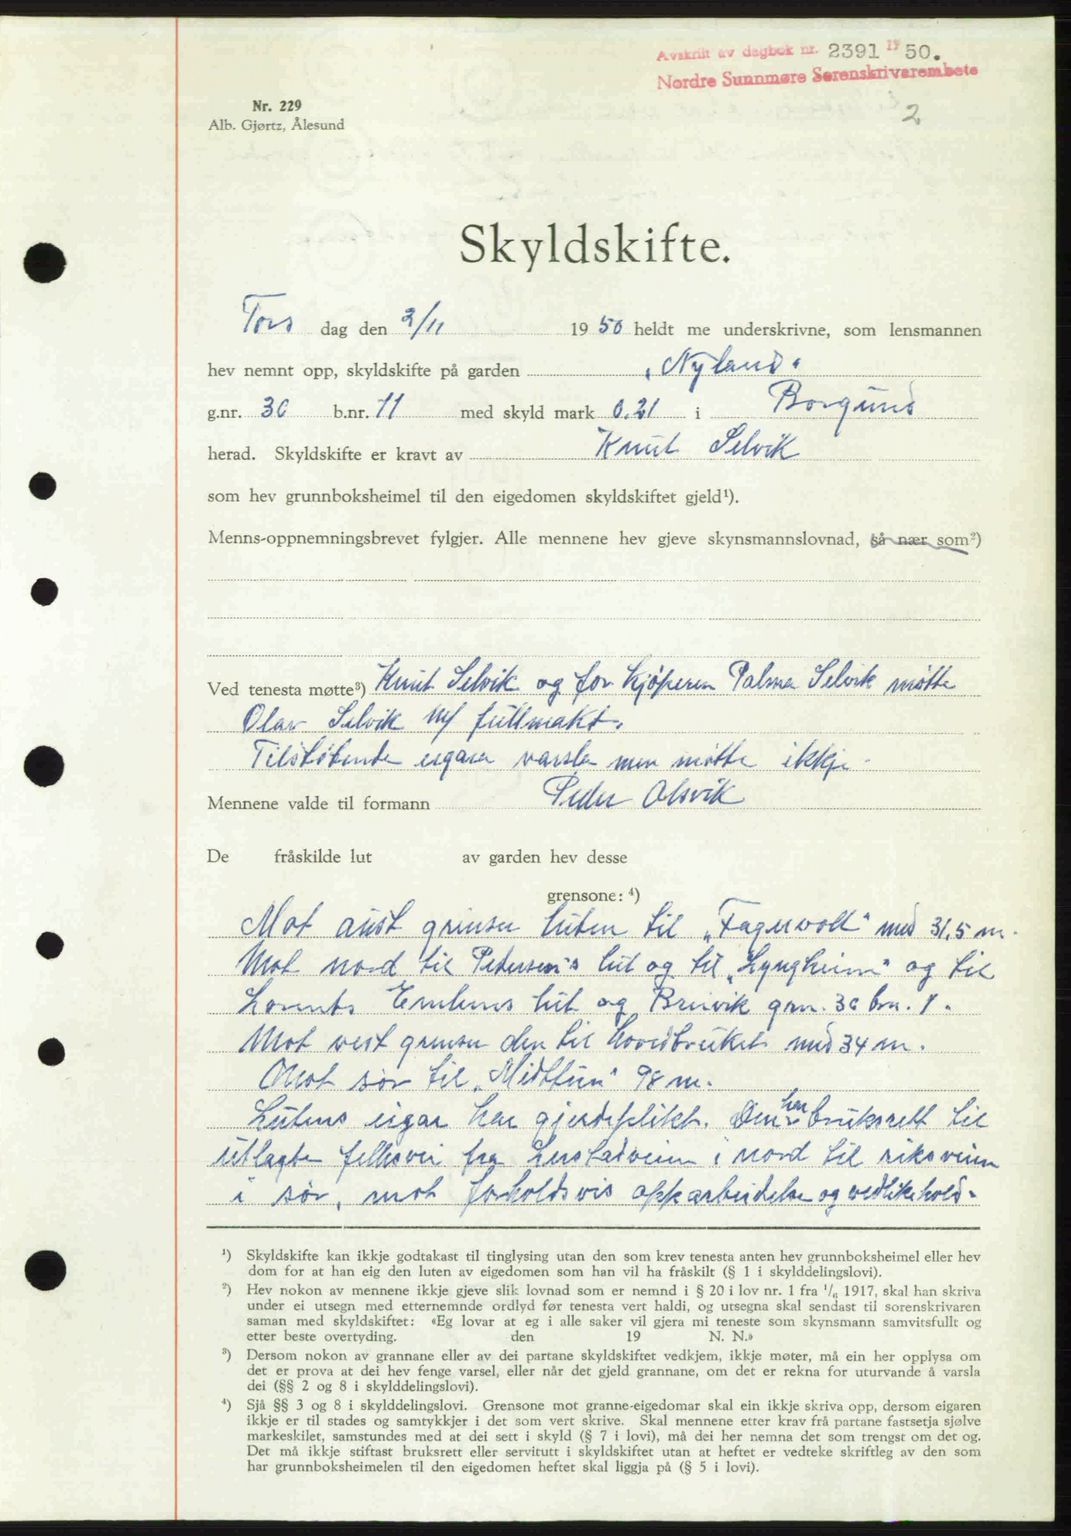 Avskrift av dagbok nr. 2391 19 50.
Nordre Sunnmøre Sorenskrivarembete
2
Nr. 229
Alb. Gjørtz, Ålesund
Skyldskifte.
Tors dag den 2/11 19 50 heldt me underskrivne, som lensmannen
hev nemnt opp, skyldskifte på garden „Nyland“
g.nr. 30 b.nr. 11 med skyld mark 0.21 i Borgund
herad. Skyldskifte er kravt av Knut Selvik
som hev grunnboksheimel til den eigedomen skyldskiftet gjeld¹).
Menns-oppnemningsbrevet fylgjer. Alle mennene hev gjeve skynsmannslovnad, så nær som²)
Ved tenesta møtte³) Knut Selvik og for kjøperen Palma Selvik møtte
Olav Selvik m/ fullmakt.
Tilstøtende eigara varsla men møtte ikkje.
Mennene valde til formann Peder Alsvik
De fråskilde lut av garden hev desse
grensone: ⁴)
Mot aust grenser luten til „Fagervoll“ med 31,5 m.
Mot nord til Pedersen's lut og til „Lyngheim“ og til
lut og Breivik grn. 30 brn. 1.
Mot vest grenser den til hovedbruket med 34 m.
Mot sør til „Midttun“ 98 m.
Lutens eigar har gjerdeplikt. Den har bruksrett til
utlagte fellesvei fra i nord til riksveien
i sør, mot forholdsvis opparbeidelse og vedlikehold.
¹) Skyldskifte kan ikkje godtakast til tinglysing utan den som krev tenesta anten hev grunnboksheimel eller hev
dom for at han eig den luten av eigedomen som han vil ha fråskilt (§ 1 i skylddelingslovi).
²) Hev nokon av mennene ikkje gjeve slik lovnad som er nemnd i § 20 i lov nr. 1 fra ¹/₆ 1917, skal han skriva
under ei utsegn med etternemnde ordlyd før tenesta vert haldi, og utsegna skal sendast til sorenskrivaren
saman med skyldskiftet: «Eg lovar at eg i alle saker vil gjera mi teneste som skynsmann samvitsfullt og
etter beste overtyding. den 19 N. N.»
³) Dersom nokon av grannane eller av dei partane skyldskiftet vedkjem, ikkje møter, må ein her opplysa om
det er prova at dei hev fenge varsel, eller når det gjeld grannane, om det er rekna for uturvande å varsla
dei (§§ 2 og 8 i skylddelingslovi).
⁴) Sjå §§ 3 og 8 i skylddelingslovi. Grensone mot granne-eigedomar skal ein ikkje skriva opp, dersom eigaren
ikkje er til stades og samtykkjer i det som vert skrive. Skal mennene etter krav frå partane fastsetja sjølve
markeskilet, samstundes med at dei sett i skyld (§ 7 i lovi), må dei her nemna det som trengst om det og.
Det må ikkje stiftast bruksrett eller servitutt i skyldskiftet utan at heftet er vedteke skriftleg av den som
har grunnboksheimelen til den eigedomen heftet skal liggja på (§ 5 i lovi).